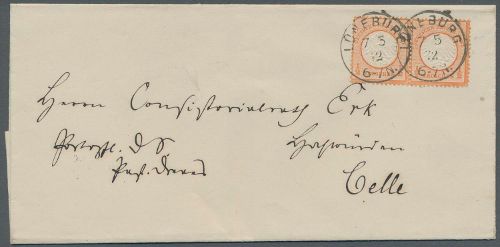 LÜNEBURG
7 5
72
6-7N.
LÜNEBURG
7 5
72
6-7N.
Herrn Consistorialrath Erk
Hochwürden
Celle